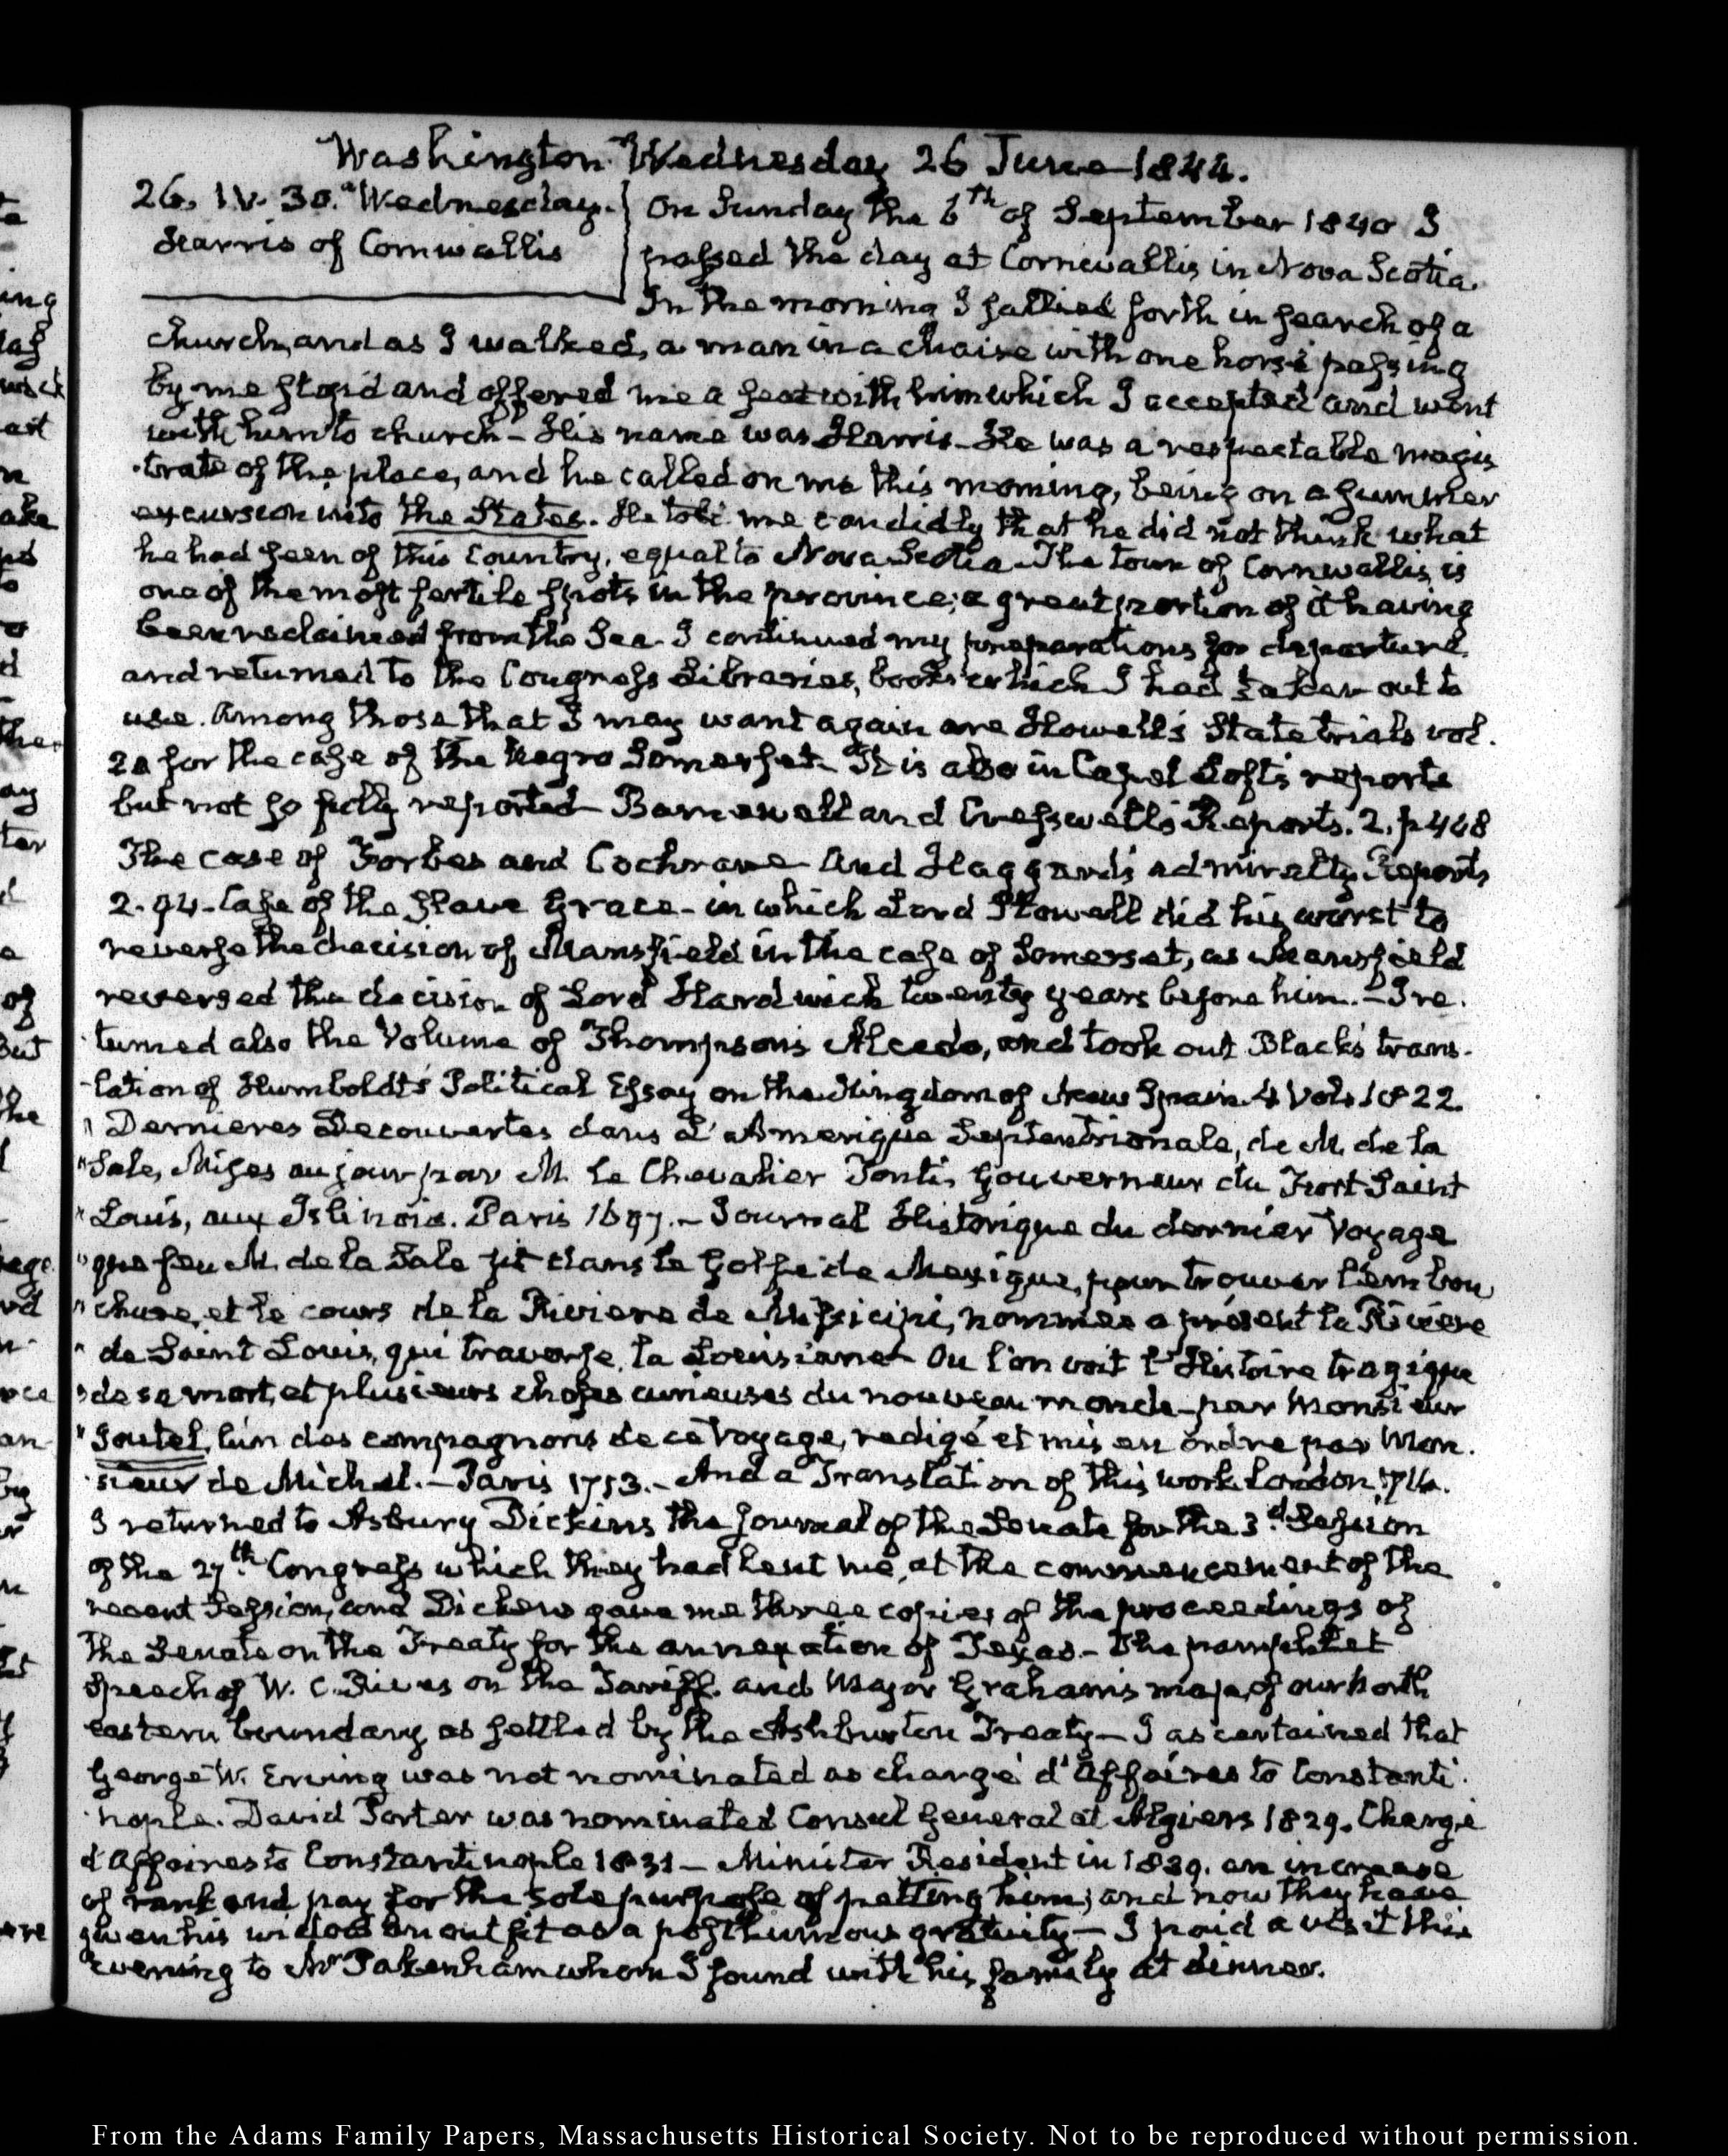 Washington Wednesday 26 June 1844.
26. IV. 30. Wednesday.
Harris of Cornwallis
On Sunday the 6th of September 1840 I
passed the day at Cornwallis in Nova Scotia.
In the morning I sallied forth in search of a
church, and as I walked, a man in a chaise with one horse passing
by me stop'd and offered me a seat with him which I accepted and went
with him to church – His name was Harris – He was a respectable magis
trate of the place, and he called on me this morning, being on a summer
excursion into the States. He told me candidly that he did not think what
he had seen of this Country, equal to Nova Scotia – The town of Cornwallis is
one of the most fertile spots in the province; a great portion of it having
been reclaimed from the Sea – I continued my preparations for departure,
and returned to the Congress Libraries, books which I had taken out to
use. Among those that I may want again are Howell's State trials vol.
20 for the case of the Negro Somerset – It is also in Capel Lofts reports
but not so fully reported – Barnewall and Cresswell's Reports. 2. p 448
The case of Forbes and Cochrane – And Haggard's admiralty Reports
2. 94 – Case of the slave Grace – in which Lord Stowell did his worst to
reverse the decision of Mansfield in the case of Somerset, as Mansfield
reversed the decision of Lord Hardwick twenty years before him. – I re.
turned also the Volume of Thompson's Alcedo, and took out Black's trans.
lation of Humboldt's Political Essay on the Kingdom of New Spain 4 Vols 1822.
" Dernieres Decouvertes dans L'Amerique Septentrionale, de M. de la
" Sale, Mises au jour par M. le Chevalier Tonti, Gouverneur du Fort Saint
" Louis, aux Islinois. Paris 1697. – Journal Historique du dernier Voyage
" que feu M. de la Sale fit dans le Golfe de Mexique, pour trouver l'embou
" chure, et le cours de la Riviere de Missicipi, nommée a présent la Riviere
" de Saint Louis, qui traverse la Louisiane – Ou l'on voit l'Histoire tragique
" de sa mort, et plusieurs choses curieuses du nouveau monde – par Monsieur
" Joutel, l'un des compagnons de ce Voyage, redigé et mis en ordre par Mon.
sieur de Michel. – Paris 1713. – And a Translation of this work London 1714.
I returned to Asbury Dickins the Journal of the Senate for the 3.d Session
of the 27.th Congress which they had lent me, at the commencement of the
recent Session, and Dickins gave me three copies of the proceedings of
the Senate on the Treaty for the annexation of Texas – The pamphlet
Speech of W. C. Rives on the Tariff. and Major Graham's map, of our North
eastern boundary as settled by the Ashburton Treaty – I ascertained that
George W. Erving was not nominated as chargé d'Affaires to Constanti.
nople. David Porter was nominated Consul General at Algiers 1829. Chargé
d'Affaires to Constantinople 1831 – Minister Resident in 1839. an increase
of rank and pay for the sole purpose of petting him; and now they have
given his widow an outfit as a posthumous gratuity – I paid a visit this
evening to Mr Pakenham whom I found with his family at dinner.
From the Adams Family Papers, Massachusetts Historical Society. Not to be reproduced without permission.